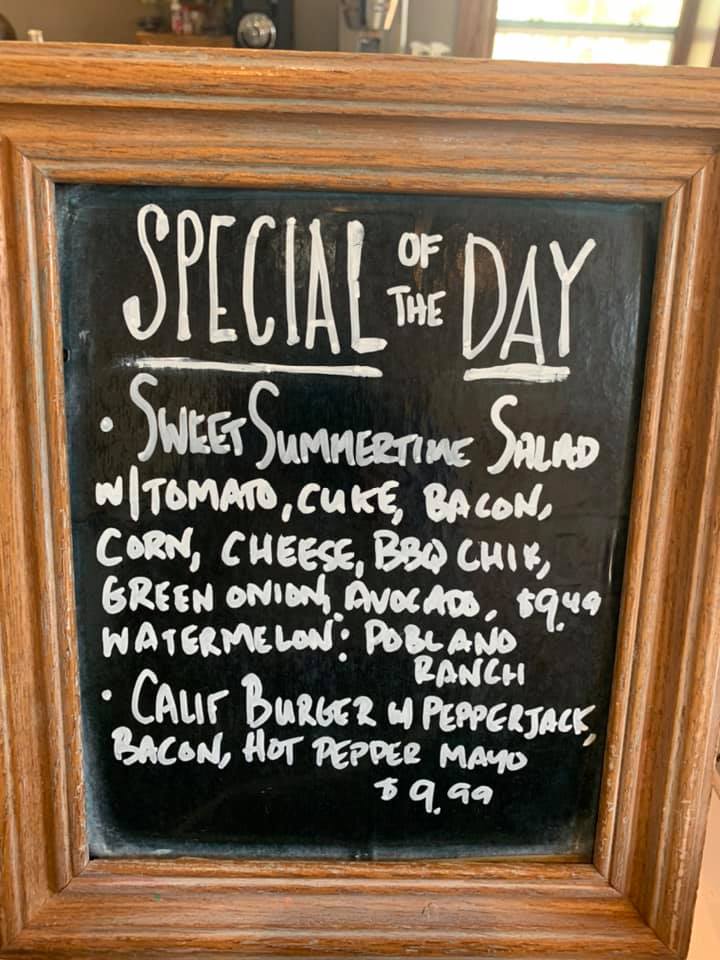 SPECIAL OF THE DAY
• SWEET SUMMERTIME SALAD
W/TOMATO, CUKE, BACON,
CORN, CHEESE, BBQ CHIX,
GREEN ONION, AVOCADO, $9.49
WATERMELON: POBLANO
RANCH
• CALIF BURGER W/ PEPPERJACK,
BACON, HOT PEPPER MAYO
$9.99